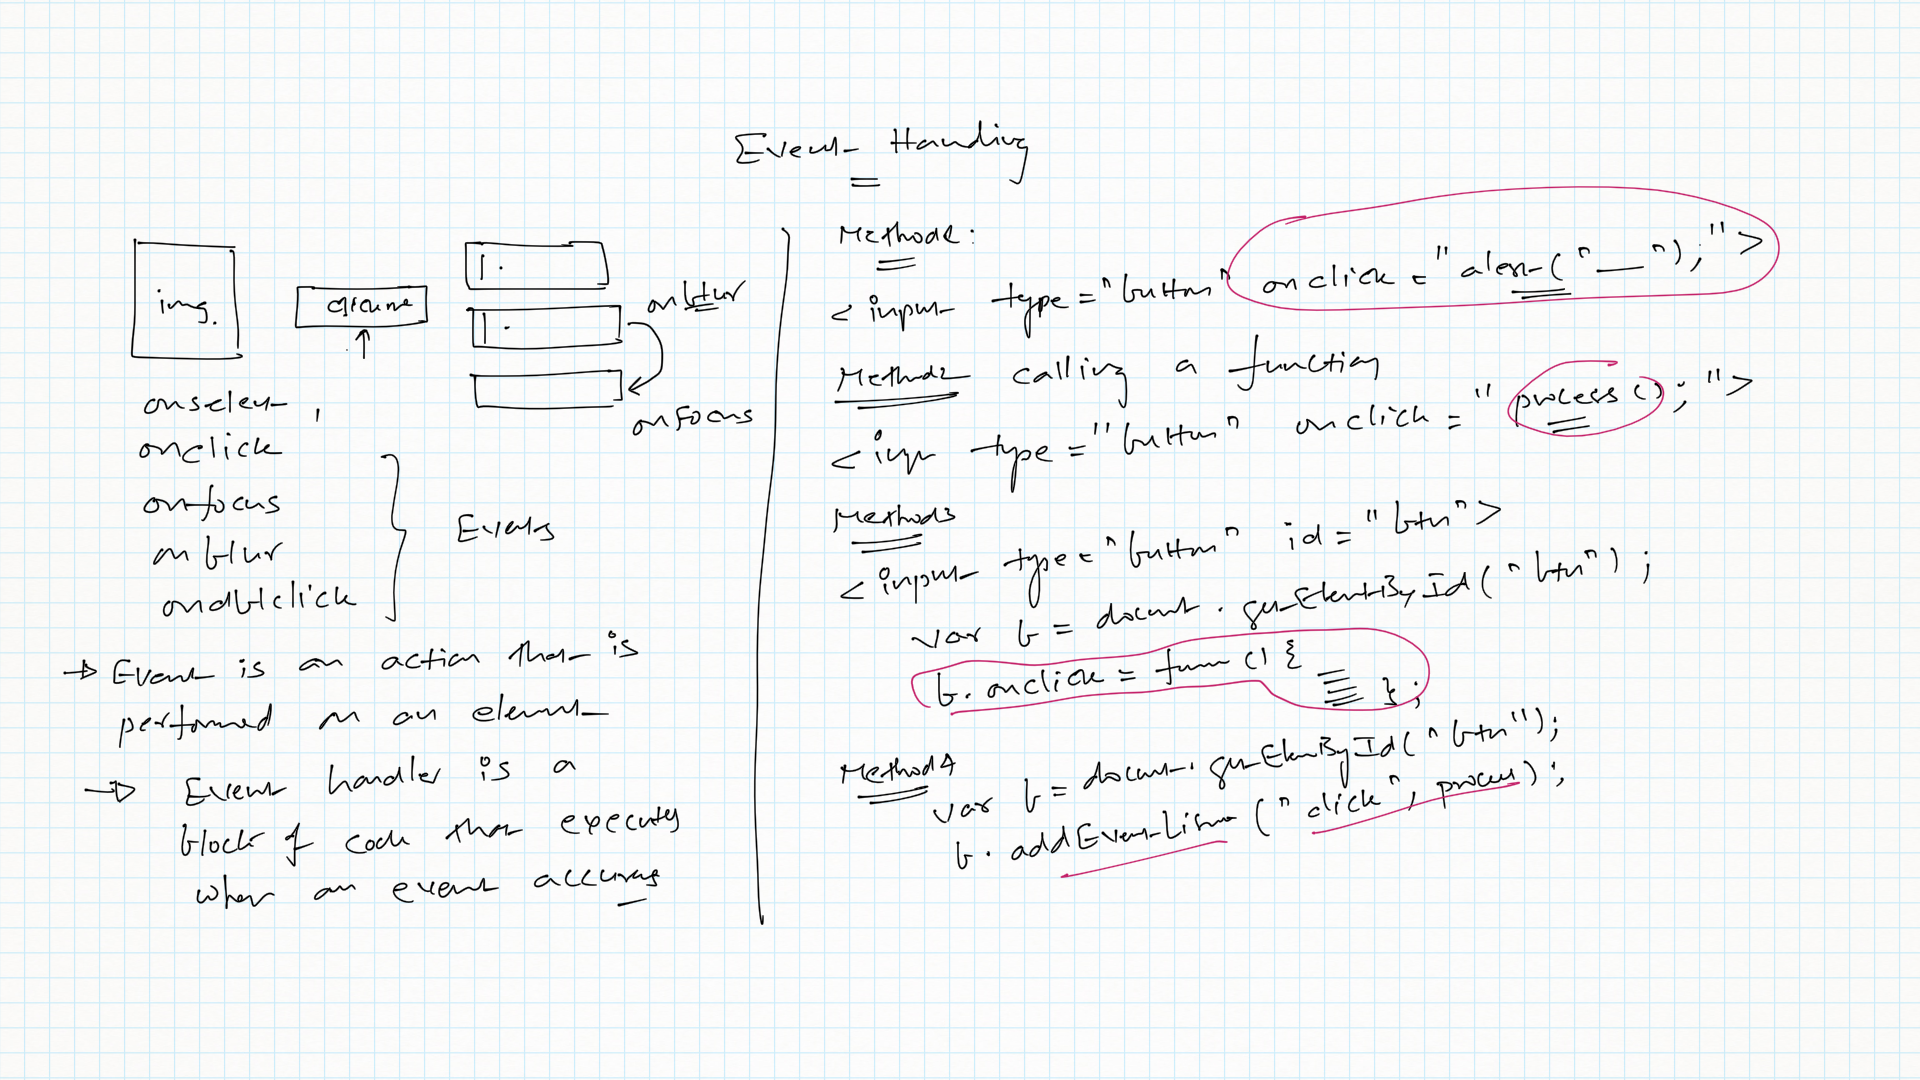 Event Handling
img.
onblur
onfocus
onselect,
onclick
onfocus
onblur
ondblclick
Events
→ Event is an action that is
performed on an element
→ Event handler is a
block of code that executes
when an event
Method1:
<input type="button" onclick="alert("__");">
Method2 calling a function
type="button" onclick="process();">
Method3
<input type="button" id="btn">
var b = document.getElementById("btn");
b.onclick = func() {
};
Method4
var b = document.getElemById("btn");
b.addEventListener("click", process);